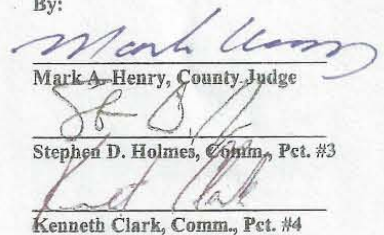 By:
Mark A. Henry, County Judge
Stephen D. Holmes, Comm., Pct. #3
Kenneth Clark, Comm., Pct. #4